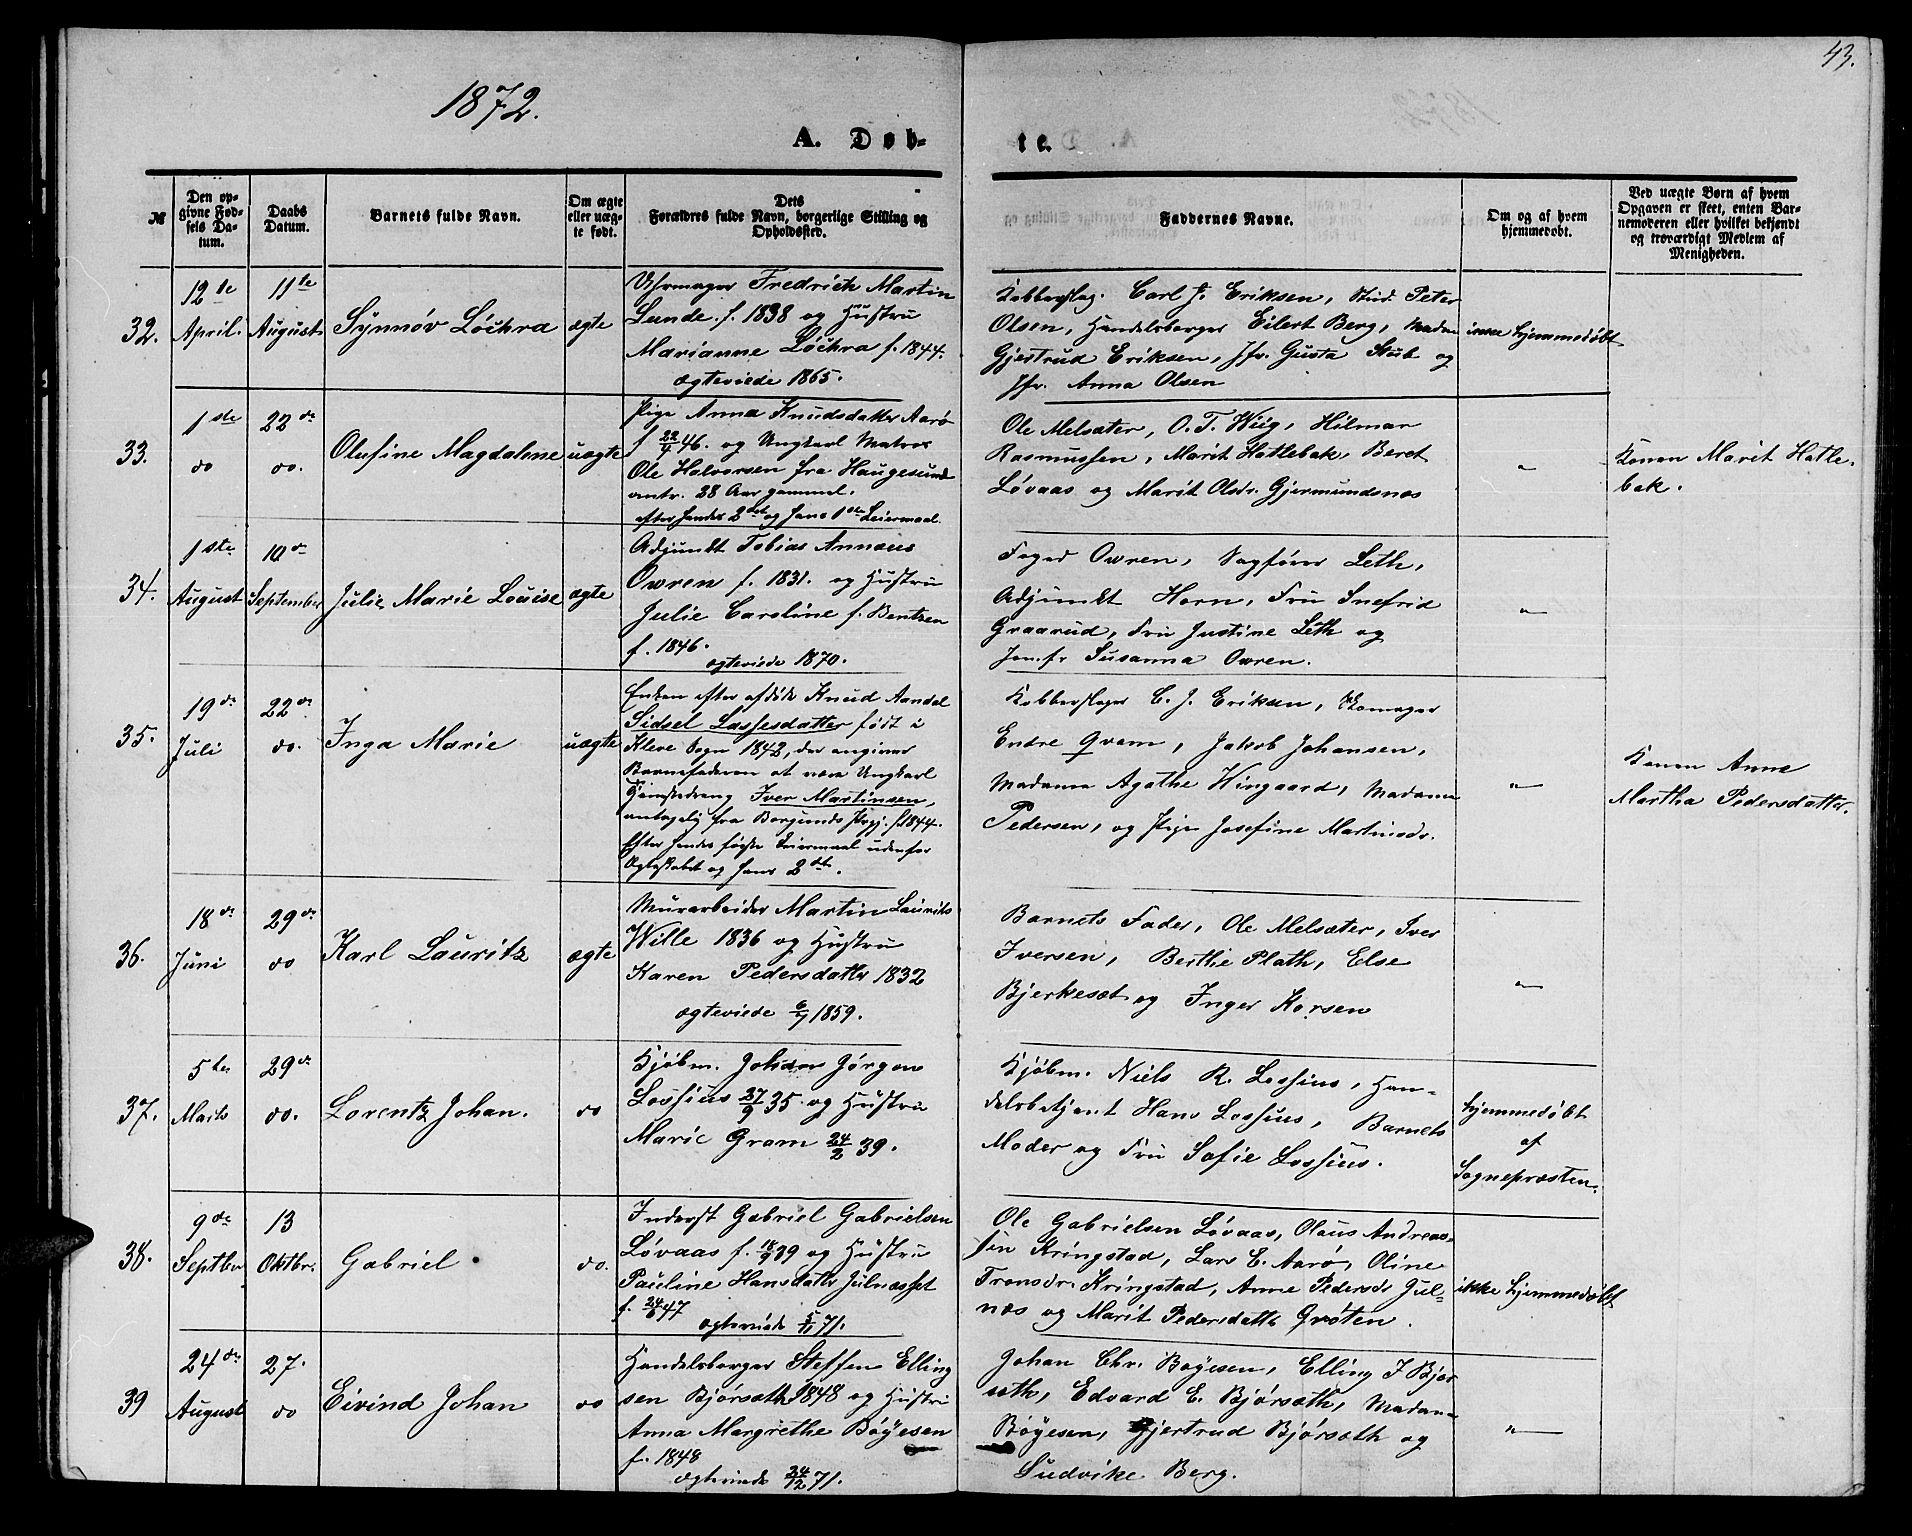 43.
1872.
A. Døb-
te.
№
Den op-
givne Fød-
sels Da-
tum.
Daabs
Datum.
Barnets fulde Navn.
Om ægte
eller uæg-
te født.
Dets
Forældres fulde Navn, borgerlige Stilling og
Opholdssted.
Faddernes Navne.
Om og af hvem
hjemmedøbt.
Ved uægte Børn af hvem
Opgaven er skeet, enten Bar-
nemoderen eller hvilket bekjendt
og troværdigt Medlem af
Menigheden.
32.
12te
April.
11te
August
Synnøv Löchra
ægte
Uhrmager Fredrich Martin
Lunde f. 1838 og Hustru
Marianne Löchra f. 1844.
ægteviede 1865.
Kobberslag. Carl J. Eriksen, Stud. Peter
Olsen, Handelsborger Eilert Berg, Madam
Gjertrud Eriksen, Jfr. Gusta Stub og
Jfr. Anna Olsen
ikke hjemmedøbt
33.
1ste
do
22de
do.
Olufine Magdalene
uægte
Pige Anna Knudsdatter Aarø
f 22/4 46. og Ungkarl Matros
Ole Halvorsen fra Haugesund
omtr. 28 Aar gammel.
efter hendes 2det og hans 1ste Leiermaal.
Ole Melsæter, O. T. Wiig, Hilmar
Rasmussen, Marit Hatlebak, Beret
Løvaas og Marit Olsdr. Gjermundsnæs
"
Konen Marit Hatle-
bak.
34.
1ste
August
10de
September
Julie Marie Louise
ægte
Adjunkt Tobias Annæus
Owren f. 1831. og Hustru
Julie Caroline f. Bentzen
f. 1846.
ægteviede 1870.
Foged Owren, Sagfører Leth,
Adjunkt Horn, Fru Snefrid
Graarud, Fru Justine Leth og
Jomfr Susanna Owren.
"
35.
19de
Juli
22de
do.
Inga Marie
uægte
Enken efter afdøde Knud Aandal
Sidsel Lassesdatter født i
Kleve Sogn 1842, der angiver
Barnefaderen at være Ungkarl
Tjenestedreng Iver Martinsen,
antagelig fra Borgunds Prgj. f. 1844.
Efter hendes første Leiermaal udenfor
Ægteskabet og hans 2det.
Kobberslager C. J. Eriksen, Skomager
Endre Qvam, Jakob Johansen,
Madame Agathe Wingaard, Madame
Pedersen, og Pige Josefine Martinsdr.
"
Konen Anne
Martha Pedersdatter.
36.
18de
Juni
29de
do
Karl Lauritz
ægte
Murarbeider Martin Laurits
Wille 1836 og Hustru
Karen Pedersdatter 1832
ægteviede 6/7 1859.
Barnets Fader, Ole Melsæter, Iver
Iversen, Berthe Plath, Else
Bjerkesæt og Inger Korsen
"
37.
5te
Marts
29de
do.
Lorentz Johan.
do
Kjøbm. Johan Jørgen
Lossius 27/9 35. og Hustru
Marie Gram 24/2 39.
Kjøbm. Niels R. Lossius, Han-
delsbetjent Hans Lossius, Barnets
Moder og Fru Sofie Lossius.
hjemmedøbt
af
Sognepræsten.
38.
9de
Septbr
13
Oktbr.
Gabriel
do.
Inderst Gabriel Gabrielsen
Løvaas f. 18/9 39 og Hustru
Pauline Hansdatter Julnæsset
f. 24/6 47
ægteviede 5/11 71.
Ole Gabrielsen Løvaas, Olaus Andreas-
sen Kringstad, Lars E. Aarø, Oline
Tronsdr. Kringstad, Anne Pedersdr Jul-
næs og Marit Pedersdatter Grøten.
ikke hjemmedøbt
39
24de
August
27.
do
Eivind Johan
do
Handelsborger Steffen Elling
sen Bjørsæth 1848 og Hustru
Anna Margrethe Bøyesen
f. 1848
ægteviede 24/12 71.
Johan Chr. Bøyesen, Elling I Bjør
sæth, Edvard E. Bjørsæth, Madam
Bøyesen, Gjertrud Bjørsæth og
Ludvike Berg.
"